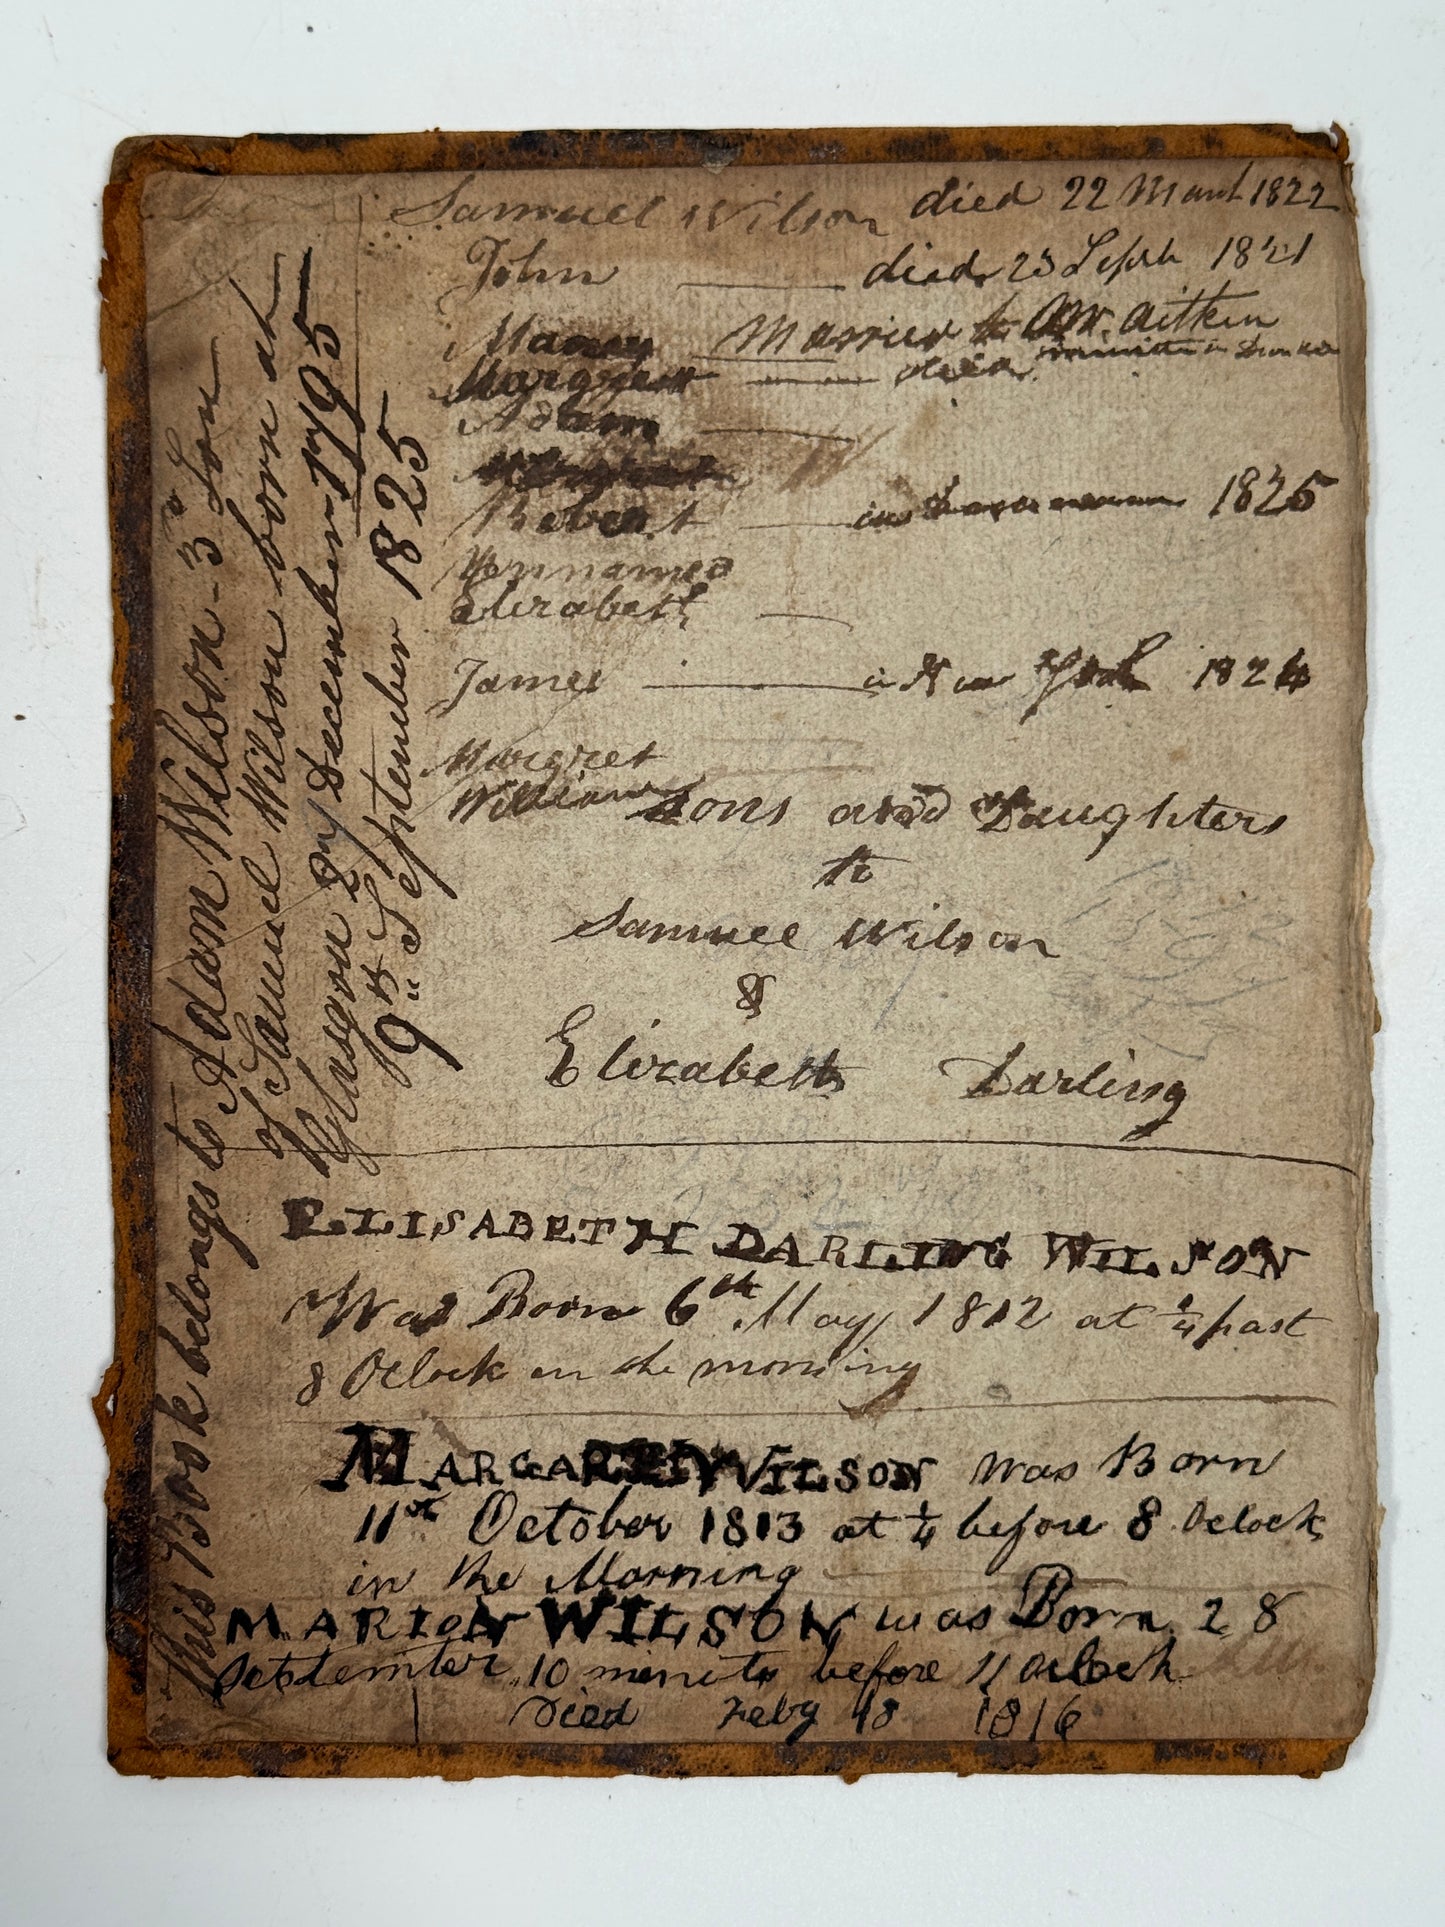 Samuel Wilson died 22 March 1822
John died 23 Sepbr 1821
Mary Married to Wm. Aitken
Margret died
Adam
Robert in 1825
Unnamed
Elizabeth
James in New York 1824
Margret
William
Sons and Daughters
to
Samuel Wilson
&
Elizabeth Darling
This Book belongs to Adam Wilson - 3d Son
of Samuel Wilson born at
Glasgow 2nd December 1795
9th September 1825
ELISABETH DARLING WILSON
Was Born 6th May 1812 at 1/4 past
8 Oclock in the morning
MARGARET WILSON was Born
11th October 1813 at 1/4 before 8 Oclock
in the Morning
MARION WILSON was Born 28
September 10 minits before 11 oclock
Died Feby 18 1816